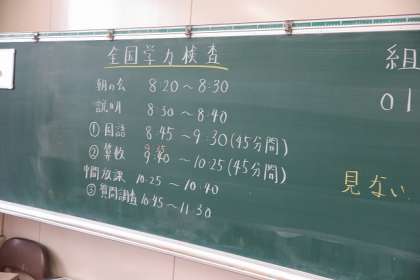 全国学力検査
朝の会 8:20～8:30
説明 8:30～8:40
①国語 8:45～9:30(45分間)
②算数 9:40～10:25(45分間)
中間放課 10:25～10:40
③質問調査 10:45～11:30
組
01
見ない